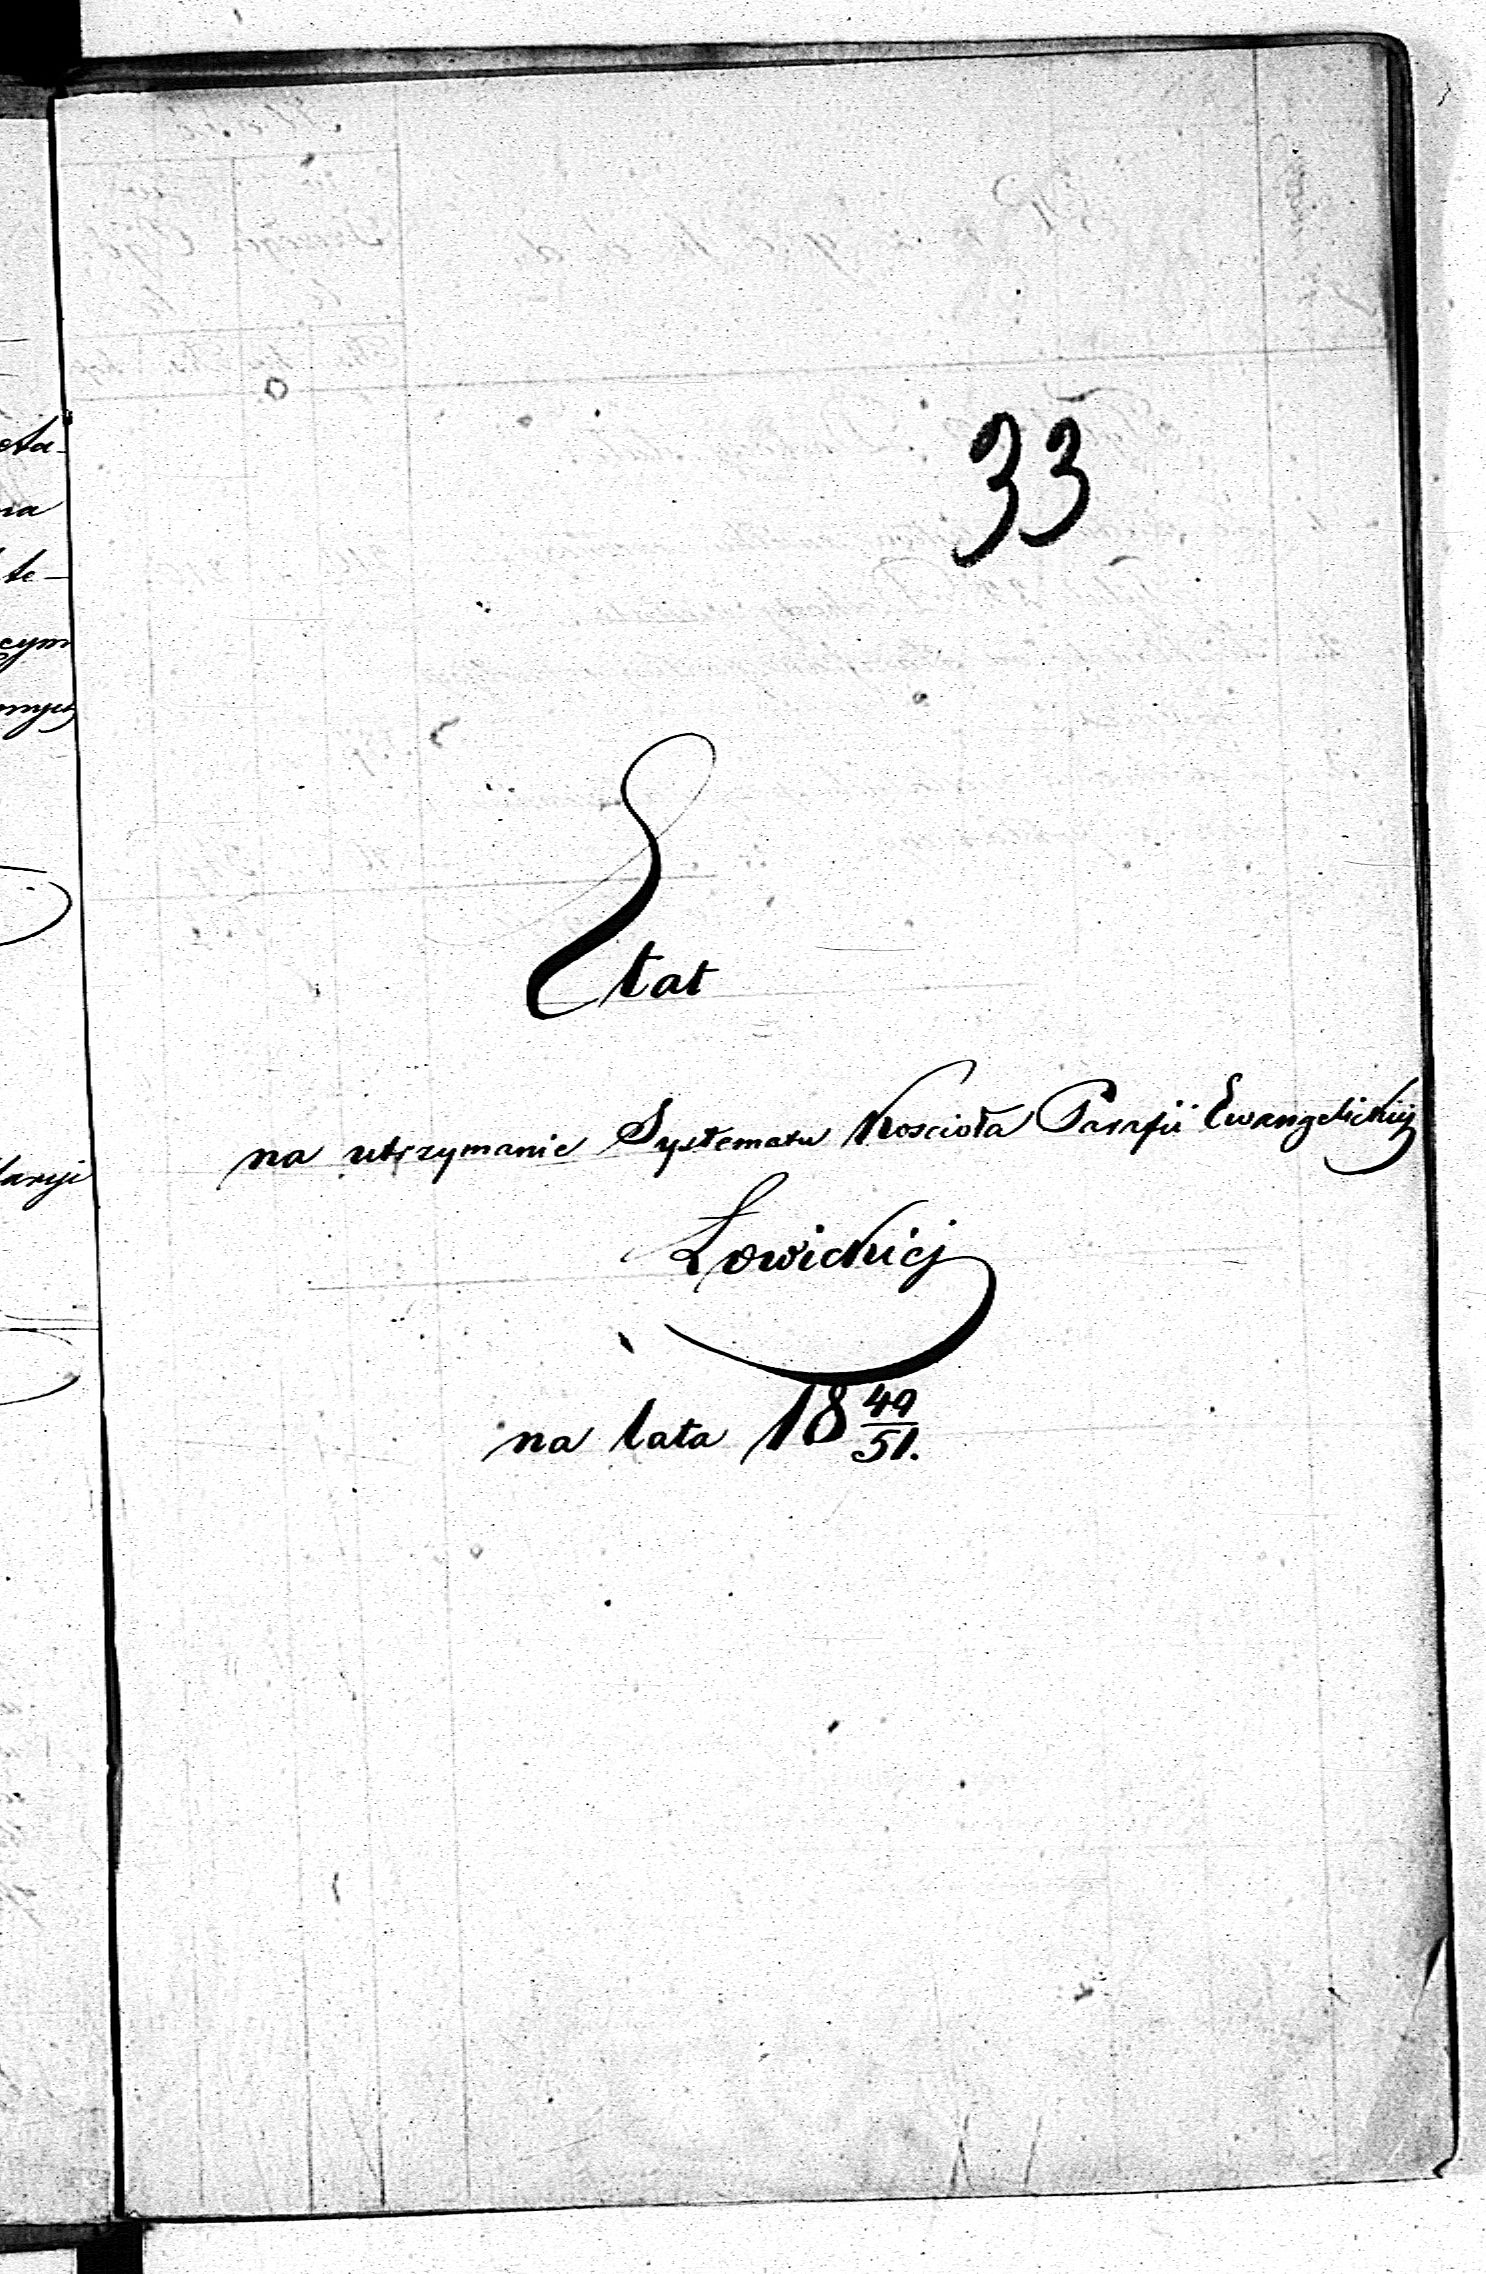 33
Etat
na utrzymanie Systematu Kościoła Parafii Ewangelickiej
Łowickiej
na lata 18 49/51.